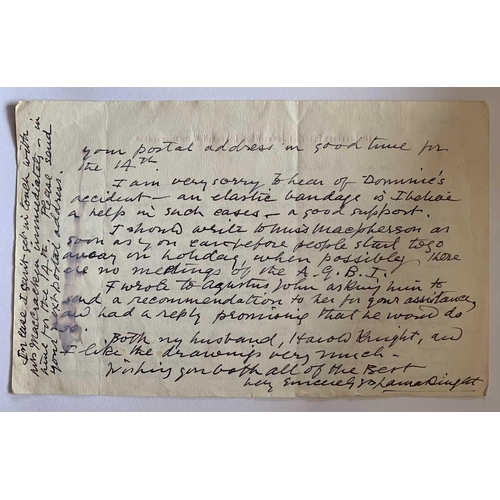 your postal address in good time for
the 14th.
I am very sorry to hear of Dominic's
accident — an elastic bandage is I believe
a help in such cases — a good support.
I should write to Miss Macpherson as
soon as you can before people start to go
away on holiday, when possibly there
are no meetings of the A.G.B.I.
I wrote to Agustus John asking him to
send a recommendation to her for your assistancy
and had a reply promising that he would do
so.
Both my husband, Harold Knight, and
I like the drawings very much —
Wishing you both all of the Best
Very Sincerely Laura Knight
In case I can't get in touch with
Mrs MacCracken immediately — in
time for the 14th. Please send
your postal address.